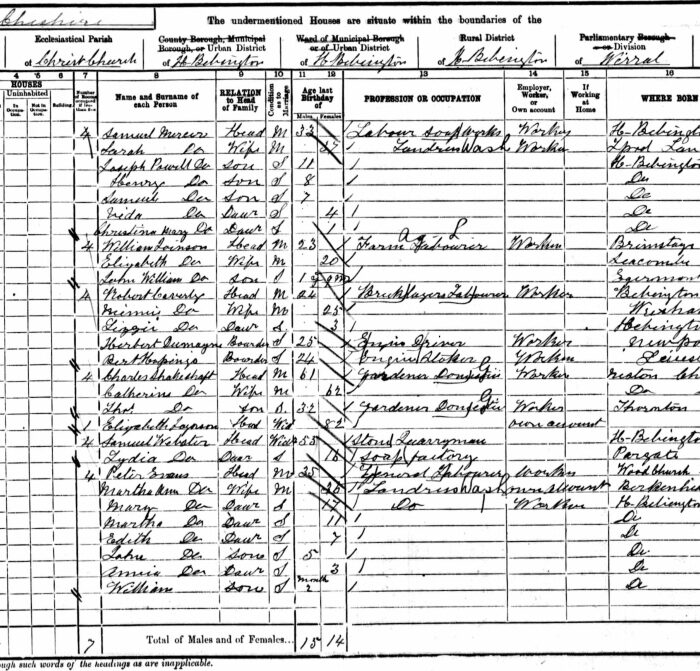 Cheshire
The undermentioned Houses are situate within the boundaries of the
Ecclesiastical Parish County Borough, Municipal Borough, or Urban District Ward of Municipal Borough or of Urban District Rural District Parliamentary Borough or Division
of Christ Church of H. Bebington of H. Bebington of H. Bebington of Wirral
4 5 6 7 8 9 10 11 12 13 14 15 16
HOUSES Uninhabited In Occupation Not in Occupation Building Number of Name and Surname of each Person RELATION to Head of Family Condition as to Marriage Age last Birthday of Males Females PROFESSION OR OCCUPATION Employer, Worker, or Own account If Working at Home WHERE BORN
4 Samuel Mercer Head M 33 Labour Soap Works Worker H-Bebington
Sarah Do Wife M Wash Worker Lpool Lan
Joseph Powell Do Son S 11 H-Bebington
Henry Do Son S 8 Do
Samuel Do Son S 7 Do
Do Daur S 4 Do
Christina Mary Do Daur S 1 Do
4 William Head M 23 Farm Labourer Worker
Elizabeth Do Wife M 20 Seacombe
John William Do Son S Egremont
4 Robert Head M 24 Bricklayers Labourer Worker Bebington
Minnie Do Wife M 25
Lizzie Do Daur S 3 Bebington
Herbert Boarder S 25 Engin Driver Worker Newpo
Bert Boarder S 24 Engine Stoker Worker
4 Charles Shakeshaft Head M 61 Gardener Domestic Worker Neston Ch
Catherine Do Wife M 62 Do
Thos. Do Son S 32 Gardener Domestic Worker Thornton
1 Elizabeth Head Wid 82 own account
4 Samuel Webster Head Widr 55 Stone Quarryman H-Bebington
Lydia Do Daur S Soap factory Pargate
4 Peter Evans Head M 35 General Labourer Worker Woodchurch
Martha Ann Do Wife M Wash own account Birkenhe
Mary Do Daur S Do Worker H-Bebington
Martha Do Daur S 11 Do
Edith Do Daur S 7 Do
Do Son S 5 Do
Annie Do Daur S 3 Do
William Son S month 2 Do
7 Total of Males and of Females... 15 14
such words of the headings as are inapplicable.